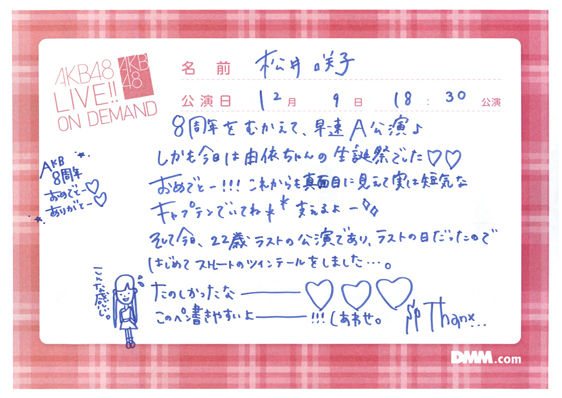 AKB48
LIVE!!
ON DEMAND
AKB
48
名前 松井咲子
公演日 12月 9日 18:30 公演
8周年をむかえて、早速A公演♪
しかも今日は由依ちゃんの生誕祭でした♡♡
おめでとー!!! これからも真面目に見えて実は短気な
キャプテンでいてね** 支えるよー
そして今日、22歳ラストの公演であり、ラストの日だったので
はじめてストレートのツインテールをしました…。
たのしかったな———♡♡♡
このペン書きやすいよ———!!! しあわせ。
Thanx...
AKB
8周年
おめでとー♡
ありがとー♡
こんな感じ。
DMM.com